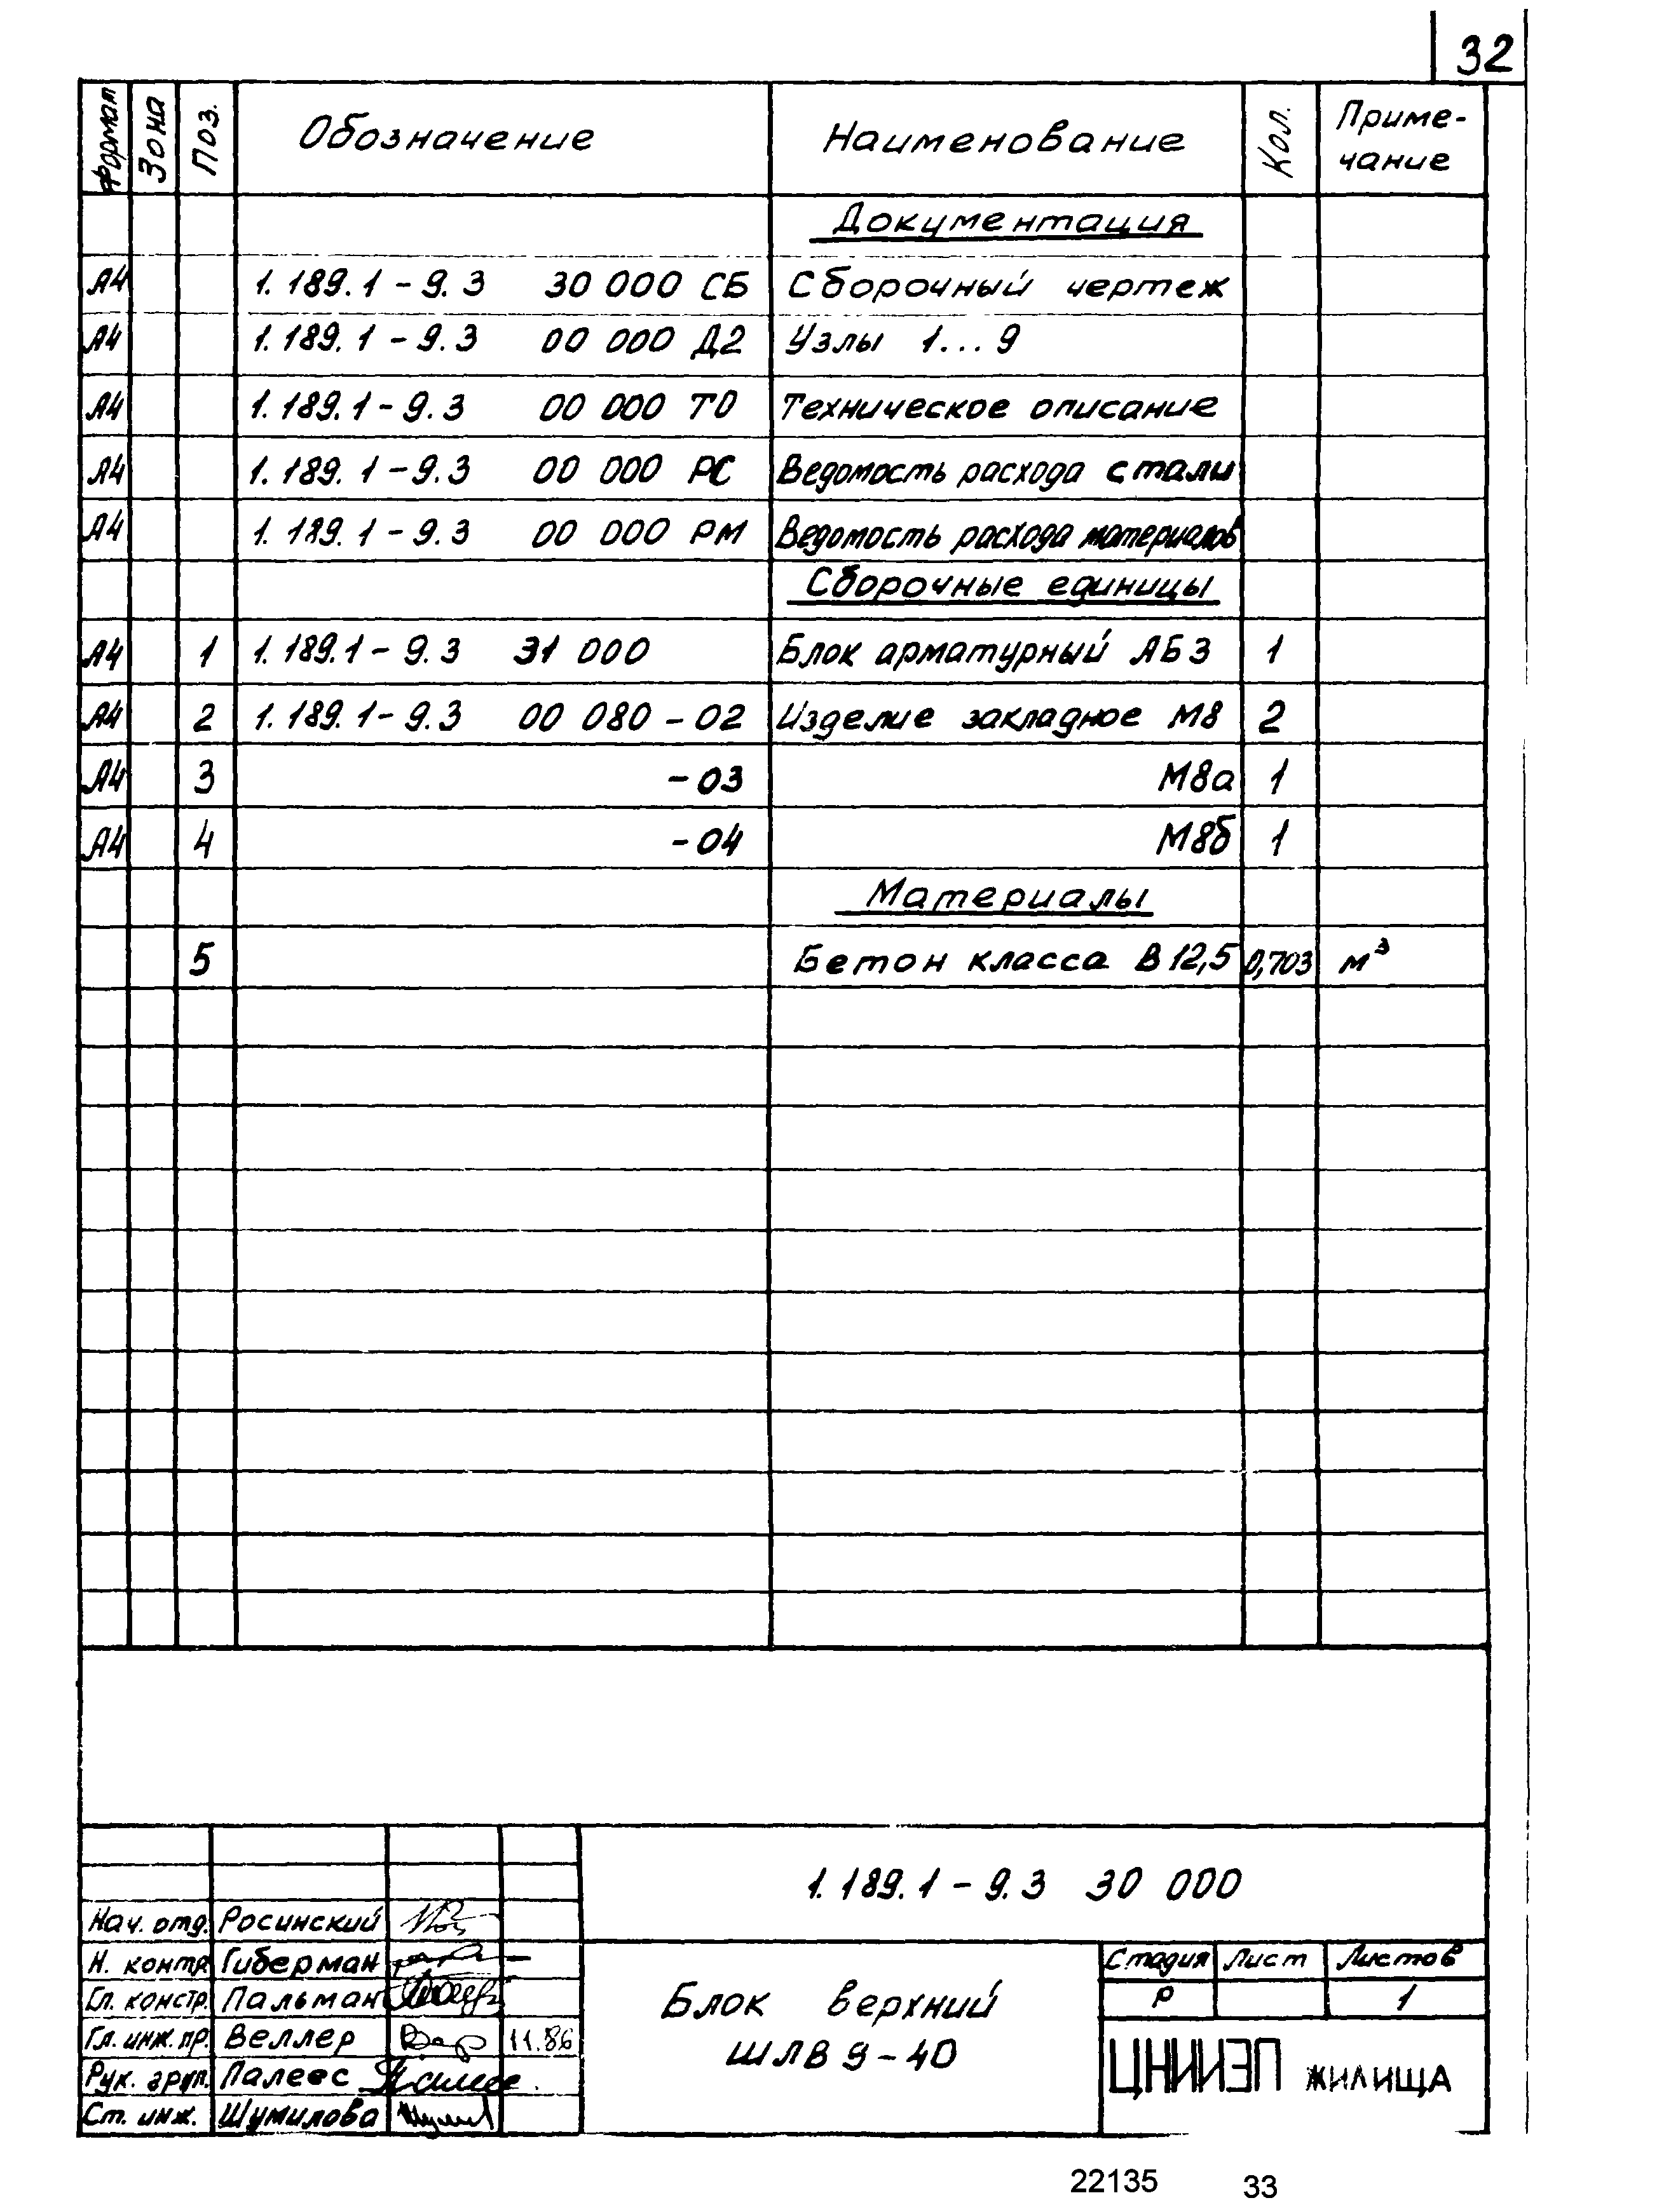 32
Формат Зона Поз. Обозначение Наименование Кол. Приме-
чание
Документация
А4 1.189.1-9.3 30 000 СБ Сборочный чертеж
А4 1.189.1-9.3 00 000 Д2 Узлы 1...9
А4 1.189.1-9.3 00 000 ТО Техническое описание
А4 1.189.1-9.3 00 000 РС Ведомость расхода стали
А4 1.189.1-9.3 00 000 РМ Ведомость расхода материалов
Сборочные единицы
А4 1 1.189.1-9.3 31 000 Блок арматурный АБ3 1
А4 2 1.189.1-9.3 00 080-02 Изделие закладное М8 2
А4 3 -03 М8а 1
А4 4 -04 М8б 1
Материалы
5 Бетон класса В12,5 0,703 м³
1.189.1-9.3 30 000
Нач. отд. Росинский
Н. контр. Гиберман
Гл. констр. Пальман
Гл. инж. пр. Веллер 11.86
Рук. груп. Палеес
Ст. инж. Шумилова
Блок верхний
ШЛВ 9-40
Стадия Лист Листов
Р 1
ЦНИИЭП жилища
22135 33